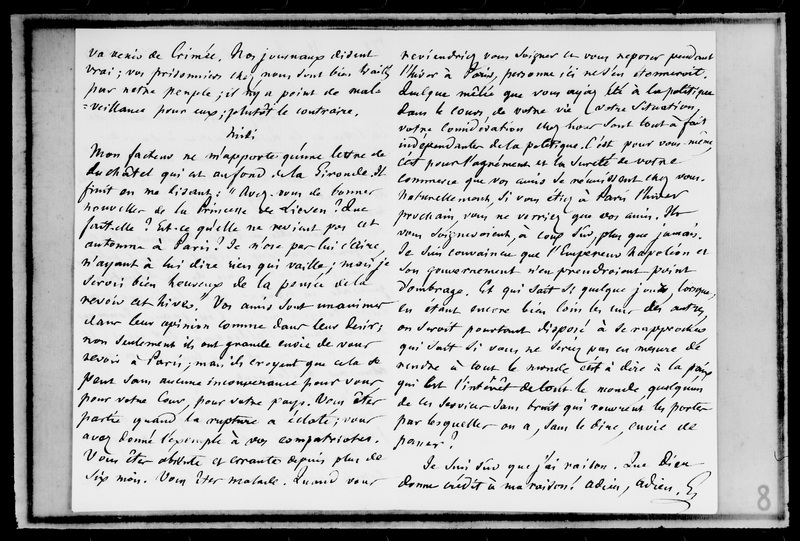 va venir de Crimée. Nos journaux disent
vrai ; vos prisonniers chez nous sont bien traités
par notre peuple ; il n'y a point de mal-
=veillance pour eux ; plutôt le contraire.
Midi
Mon facteur ne m'apporte qu'une lettre de
duchâtel qui est au fond de la Gironde. Il
finit en me disant : "Avez-vous de bonnes
nouvelles de la Princesse de Lieven ? Que
fait-elle ? Est-ce qu'elle ne revient pas cet
automne à Paris ? Je n'ose pas lui écrire,
n'ayant à lui dire rien qui vaille ; mais je
serois bien heureux de la pensée de la
revoir cet hiver." Vos amis sont unanimes
dans leur opinion comme dans leur désir ;
non seulement ils ont grande envie de vous
revoir à Paris ; mais ils croyent que cela se
peut sans aucune inconvenance pour vous,
pour votre Cour, pour votre pays. Vous êtes
partie quand la rupture a éclaté ; vous
avez donné l'exemple à vos compatriotes.
Vous êtes absente et errante depuis plus de
six mois. Vous êtes malade. Quand vous
reviendriez vous soigner et vous reposer pendant
l'hiver à Paris, personne ici ne s'en étonneroit.
Quelque mêlée que vous ayez été à la politique
dans le cours de votre vie, votre situation,
votre considération chez nous sont tout à fait
indépendantes de la politique. C'est pour vous-même,
c'est pour l'agrément et la sureté de votre
commerce que vos amis se réunissent chez vous.
Naturellement, si vous étiez à Paris l'hiver
prochain, vous ne verriez que vos amis. Ils
vous soigneroient, à coup sûr, plus que jamais.
Je suis convaincu que l'Empereur Napoléon et
son gouvernement n'en prendroient point
d'ombrage. Et qui sait si, quelque jour, lorsque,
en étant encore bien loin les uns des autres,
on seroit pourtant disposé à se rapprocher
qui sait si vous ne seriez pas en mesure de
rendre à tout le monde c'est à dire à la paix
qui est l'intérêt de tout le monde, quelqu'un
de ces services sans bruit qui rouvrent les portes
par lesquelles on a, sans le dire, envie de
passer ?
Je suis sûr que j'ai raison. Que Dieu
donne crédit à ma raison ! adieu, adieu. G
8